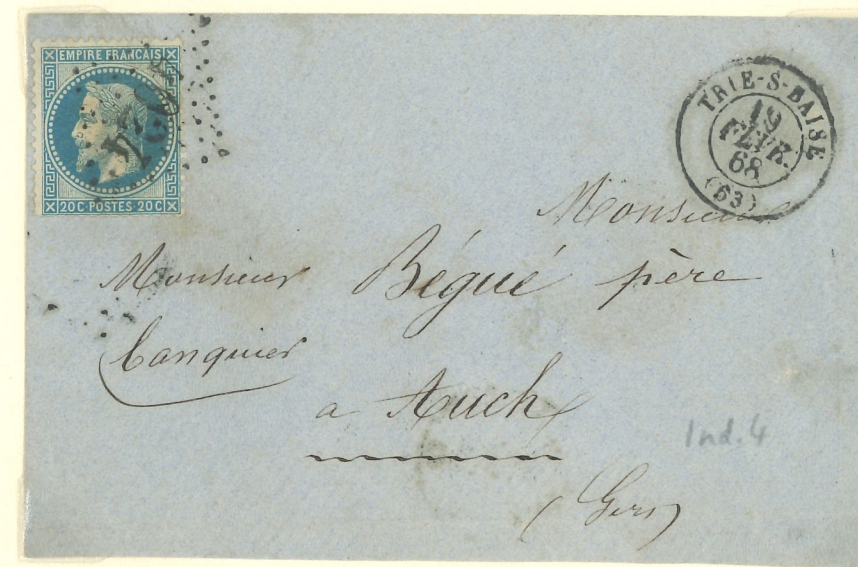 EMPIRE FRANÇAIS
20C·POSTES·20C
TRIE-S-BAISE
19
FEVR.
68
(63)
Monsieur
Monsieur Bégué père
banquier
a Auch
(Gers)
Ind. 4